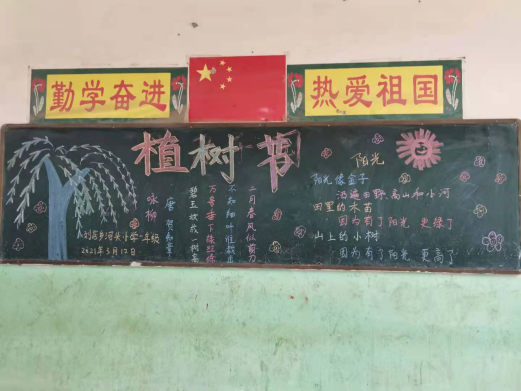 勤学奋进
热爱祖国
植树节
咏柳
唐 贺知章
碧玉妆成一树高
万条垂下绿丝绦
不知细叶谁裁出
二月春风似剪刀
小学一年级
2021年3月17日
阳光
阳光像金子
洒遍田野、高山和小河
田里的禾苗
因为有了阳光 更绿了
山上的小树
因为有了阳光 更高了